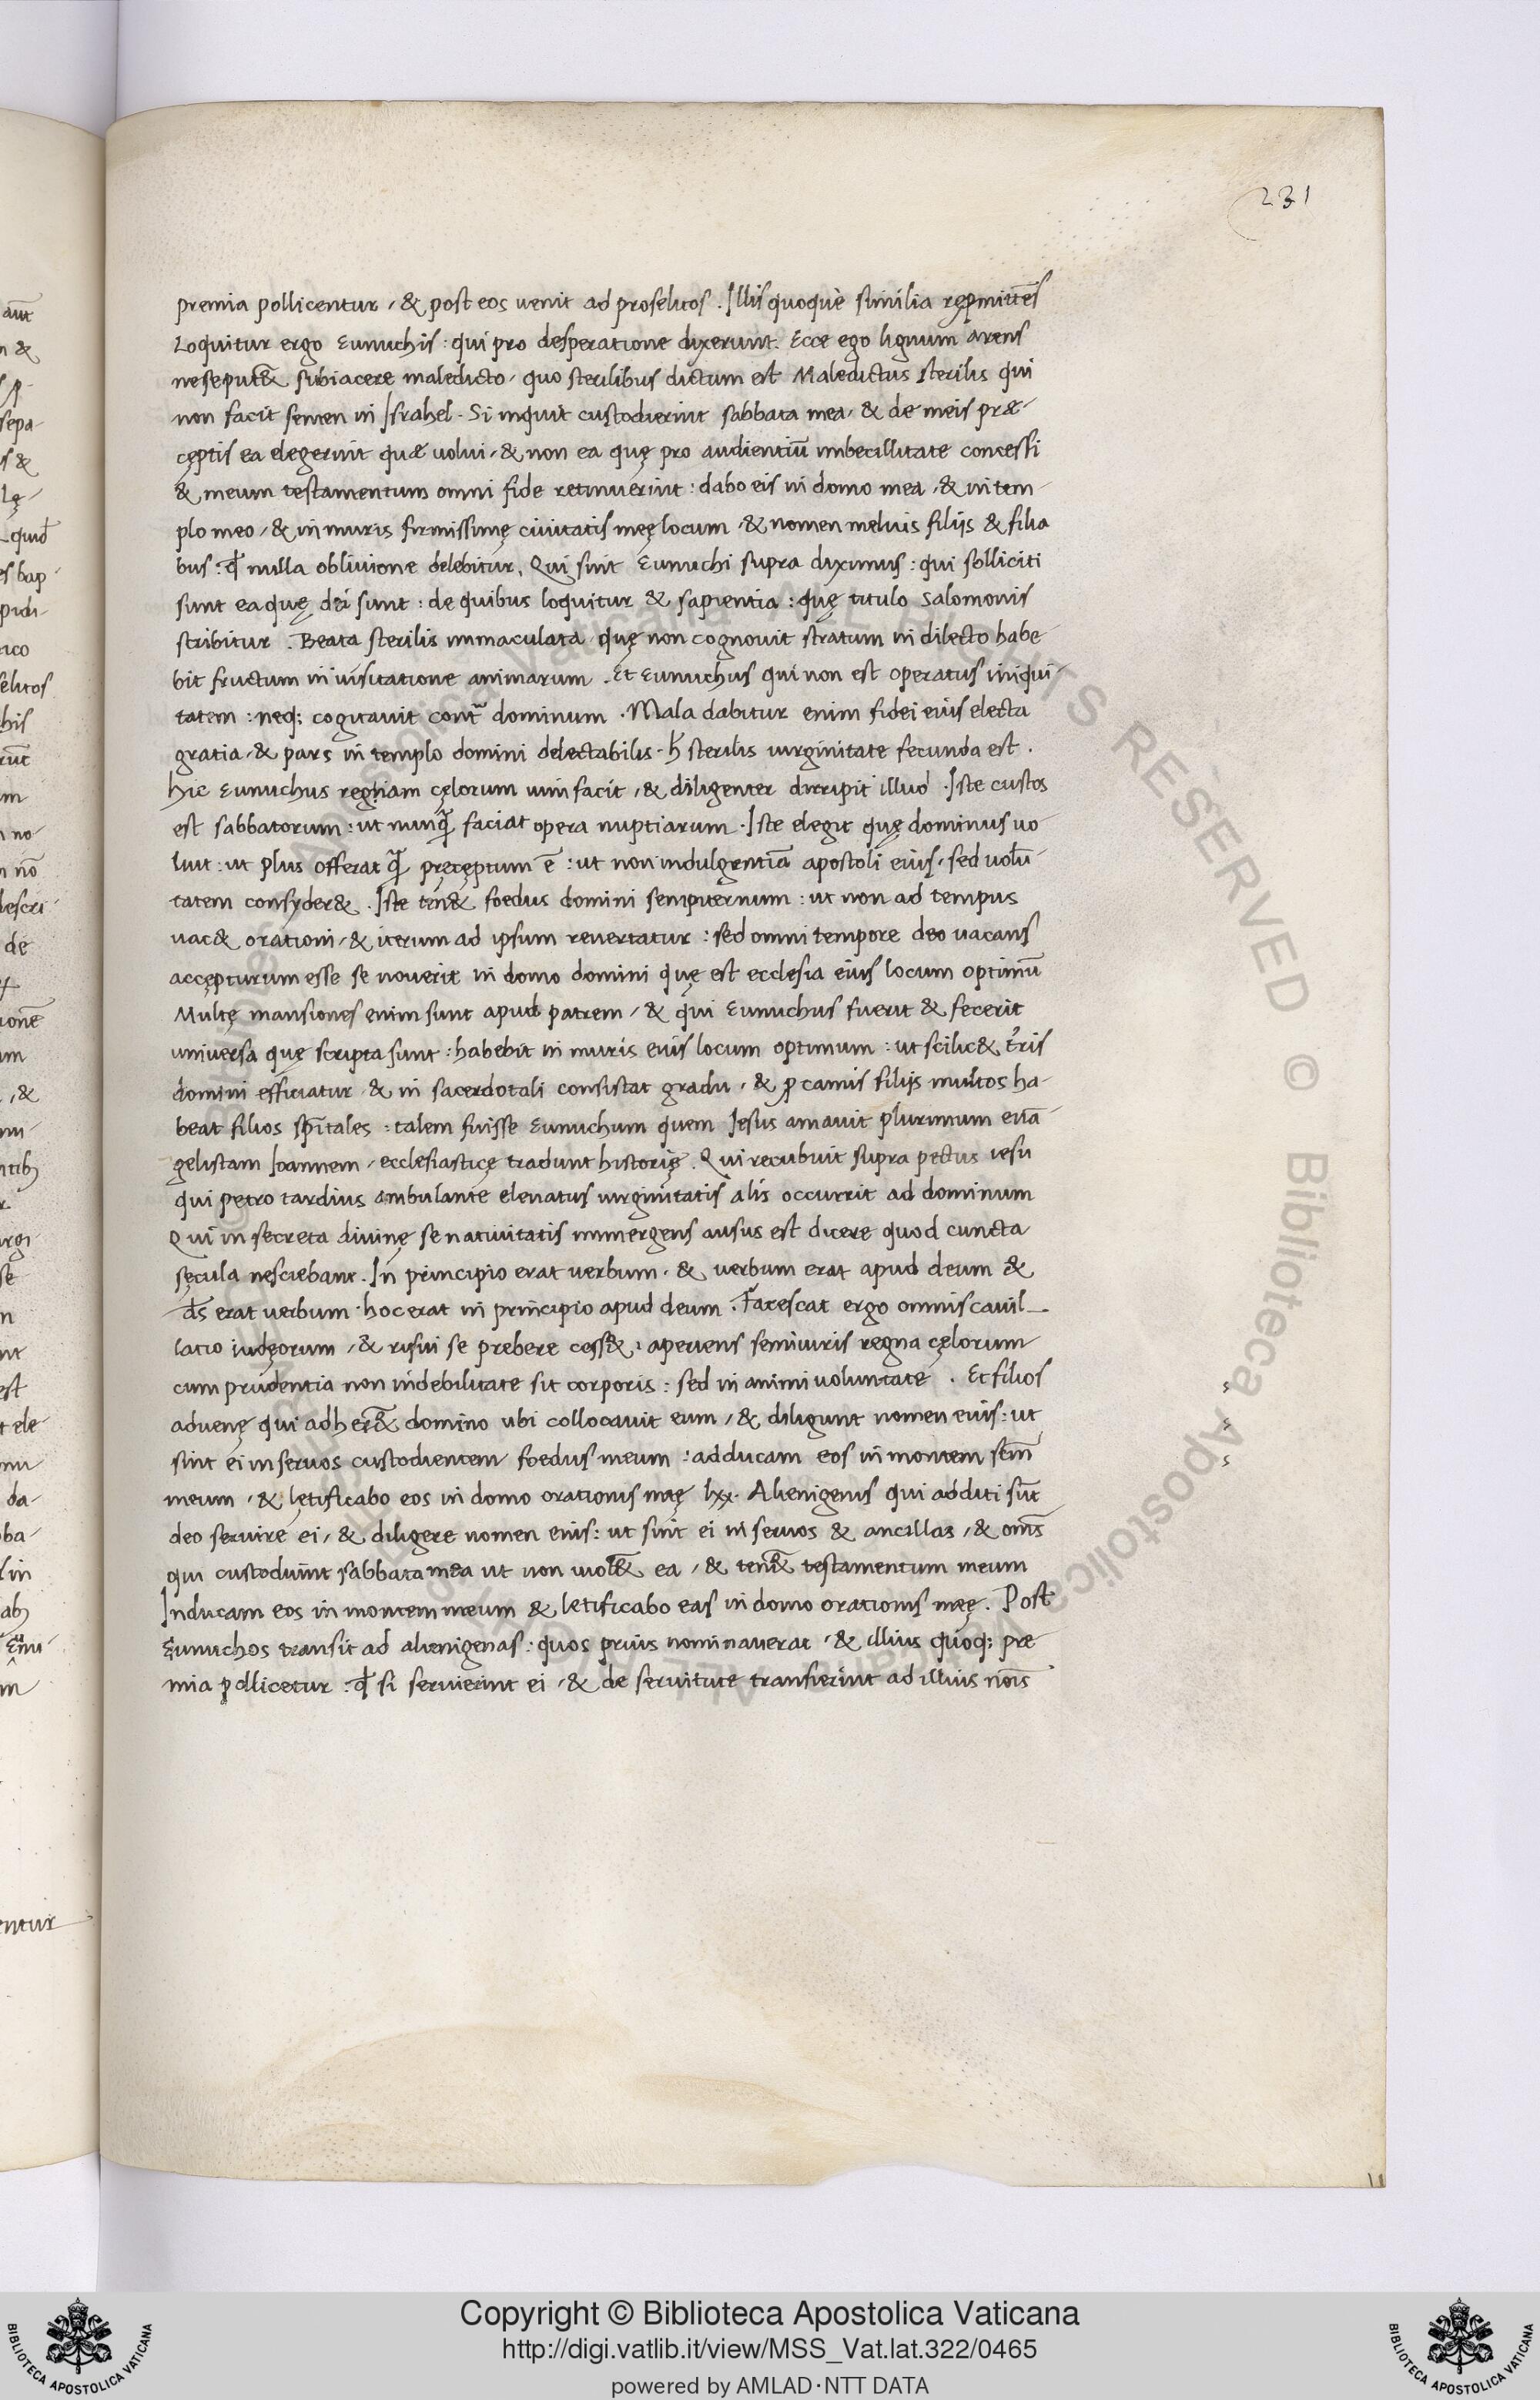 231
premia pollicentur, & post eos uenit ad proselitos. Illis quoque similia repmittēs
Loquitur ergo Eunuchis: qui pro desperatione dixerunt. Ecce ego lignum arens
ne se put& subiacere maledicto, quo sterilibus dictum est Maledictus sterilis qui
non facit semen in Israhel. Si inquit custodierint sabbata mea, & de meis præ-
cęptis ea elegerint quæ uolui, & non ea quę pro audientiū imbecillitate concessi
& meum testamentum omni fide retinuerint: dabo eis in domo mea, & in tem-
plo meo, & in muris firmissimę ciuitatis meę locum, & nomen melius filijs & filia
bus: qđ nulla obliuione delebitur. Qui sint Eunuchi supra diximus: qui solliciti
sunt ea quę dei sunt: de quibus loquitur & sapientia: quę titulo Salomonis
scribitur. Beata sterilis immaculata quę non cognouit stratum in dilecto habe-
bit fructum in uisitatione animarum. Et Eunuchus qui non est operatus iniqui-
tatem: neq; cogitauit cont̃ dominum. Mala dabitur enim fidei eius electa
gratia, & pars in templo domini delectabilis. h̄ sterilis uirginitate fecunda est.
hic Eunuchus regnam cęlorum uim facit, & diligenter dirripit illud. Iste custos
est sabbatorum: ut nunq̃ faciat opera nuptiarum. Iste elegit quę dominus uo
luit: ut plus offerat q̃ pręcęptum ē: ut non indulgentiā apostoli eius, sed uolū-
tatem consyder&. Iste tin& foedus domini sempiternum: ut non ad tempus
uac& orationi, & iterum ad ipsum reuertatur: sed omni tempore deo uacans
accępturum esse se nouerit in domo domini quę est ecclesia eius locum optimū
Multę mansiones enim sunt apud patrem, & qui Eunuchus fuerit & fecerit
uniuersa quę scripta sunt: habebit in muris eius locum optimum: ut scilic& t̃ris
domini efficiatur & in sacerdotali consistat gradu, & ꝓ carnis filijs multos ha-
beat filios sp̄itales: talem fuisse Eunuchum quem Iesus amauit plurimum euā-
gelistam Ioannem, ecclesiasticę tradunt historię. Qui recubuit supra pectus iesu
qui petro tardius ambulante eleuatus uirginitatis alis occurrit ad dominum
Qui in secreta diuinę se natiuitatis immergens ausus est dicere quod cuncta
sęcula nesciebant. In principio erat uerbum, & uerbum erat apud deum &
ds̄ erat uerbum. hoc erat in principio apud deum. Tarescat ergo omnis cauil-
latio iudęorum, & risui se prebere cess&: aperiens semiuiris regna cęlorum
cum prudentia non in debilitate sit corporis: sed in animi uoluntate. Et filios
aduenę qui adher& domino ubi collocauit eum, & diligunt nomen eius: ut
sint ei in seruos custodientem foedus meum: adducam eos in montem scm̄
meum, & lętificabo eos in domo orationis męę lxx. Alienigenis qui additi sūt
deo seruire ei, & diligere nomen eius: ut sint ei in seruos & ancillas, & om̄s
qui custodiunt sabbata mea ut non uiol& ea, & ten& testamentum meum
Inducam eos in montem meum & letificabo eas in domo orationis męę. Post
Eunuchos transit ad alienigenas: quos prius nominauerat, & illius quoq; præ
mia pollicetur: qđ si seruierint ei, & de seruitute transierint ad illius nōis
Copyright © Biblioteca Apostolica Vaticana
http://digi.vatlib.it/view/MSS_Vat.lat.322/0465
powered by AMLAD·NTT DATA
BIBLIOTECA APOSTOLICA VATICANA
BIBLIOTECA APOSTOLICA VATICANA